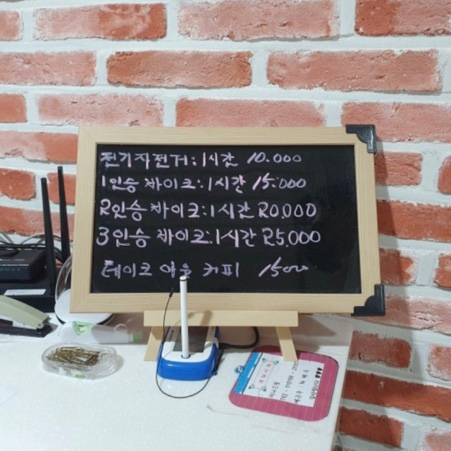 전기자전거:1시간 10.000
1인승 바이크:1시간 15.000
2인승 바이크:1시간 20,000
3인승 바이크:1시간 25,000
테이크 아웃 커피 1500